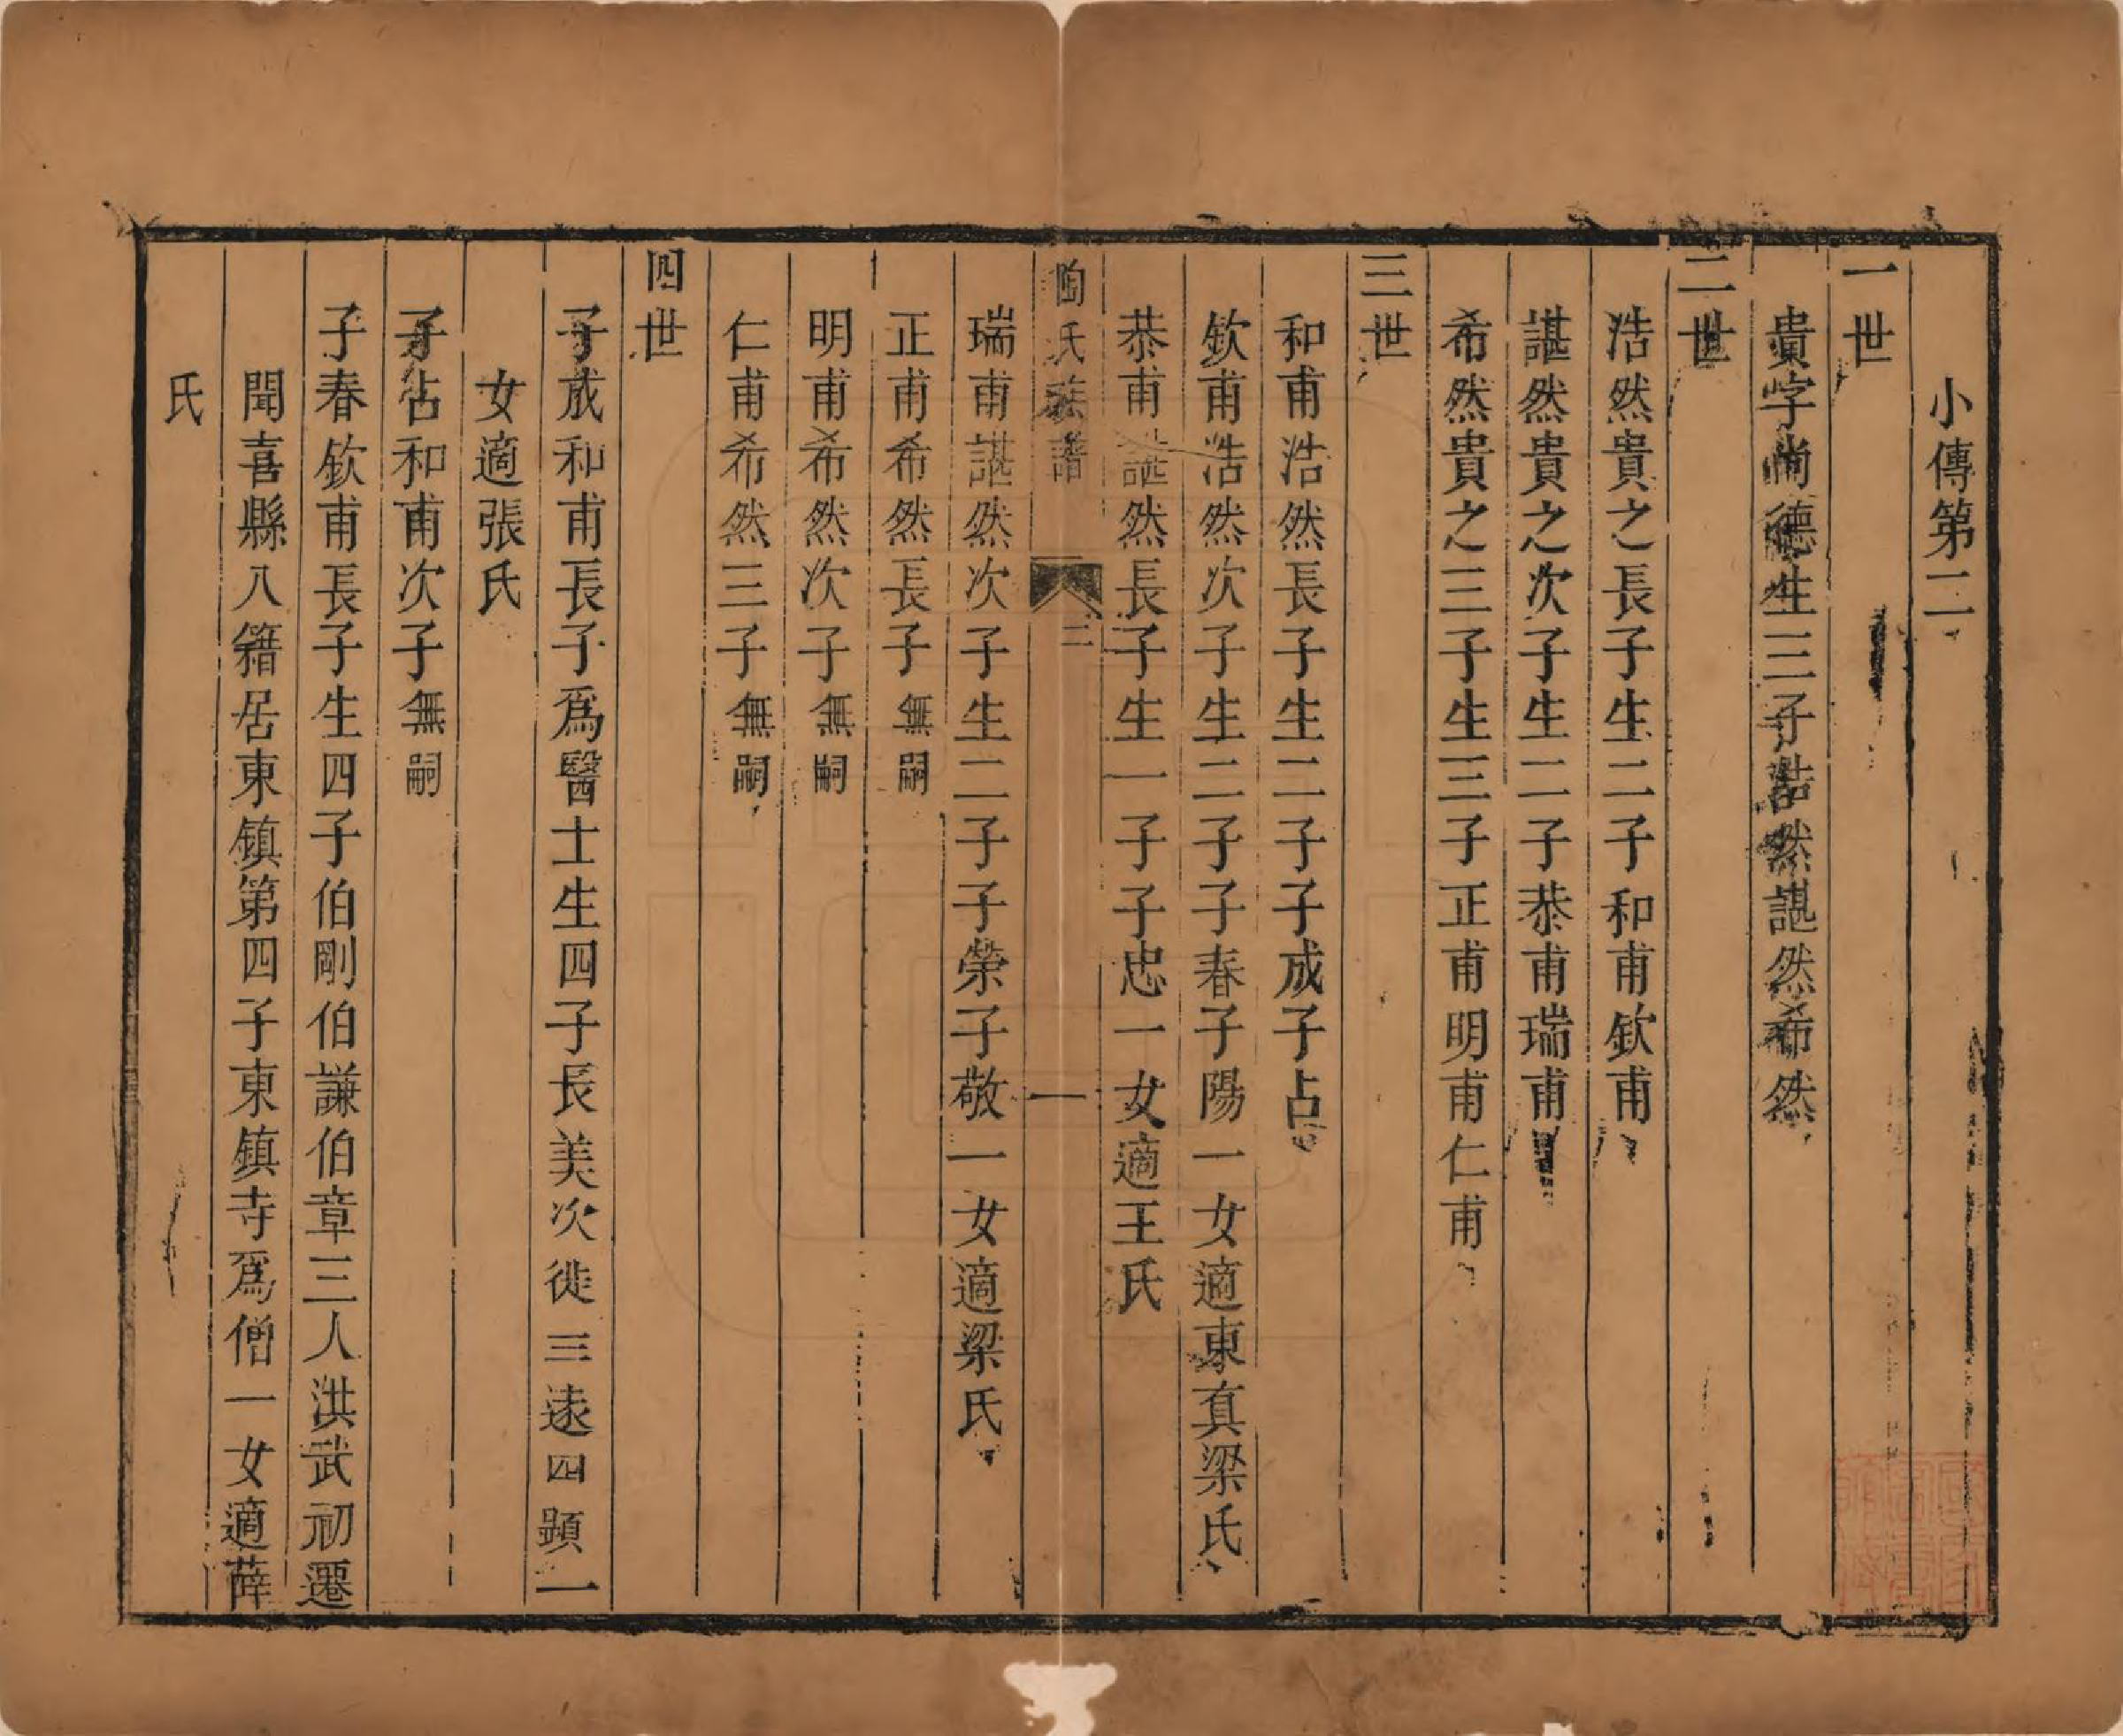 小傳第二
一世
貴字尚德生三子浩然諶然希然
二世
浩然貴之長子生二子和甫欽甫
諶然貴之次子生二子恭甫瑞甫
希然貴之三子生三子正甫明甫仁甫
三世
和甫浩然長子生二子子成子占
欽甫浩然次子生二子子春子陽一女適東真梁氏
恭甫諶然長子生一子子忠一女適王氏
陶氏族譜 二 一
瑞甫諶然次子生二子子榮子敬一女適梁氏
正甫希然長子無嗣
明甫希然次子無嗣
仁甫希然三子無嗣
四世
子成和甫長子爲醫士生四子長美次徙三逺四顕一
女適張氏
子占和甫次子無嗣
子春欽甫長子生四子伯剛伯謙伯章三人洪武初遷
聞喜縣入籍居東鎮第四子東鎮寺爲僧一女適薛
氏